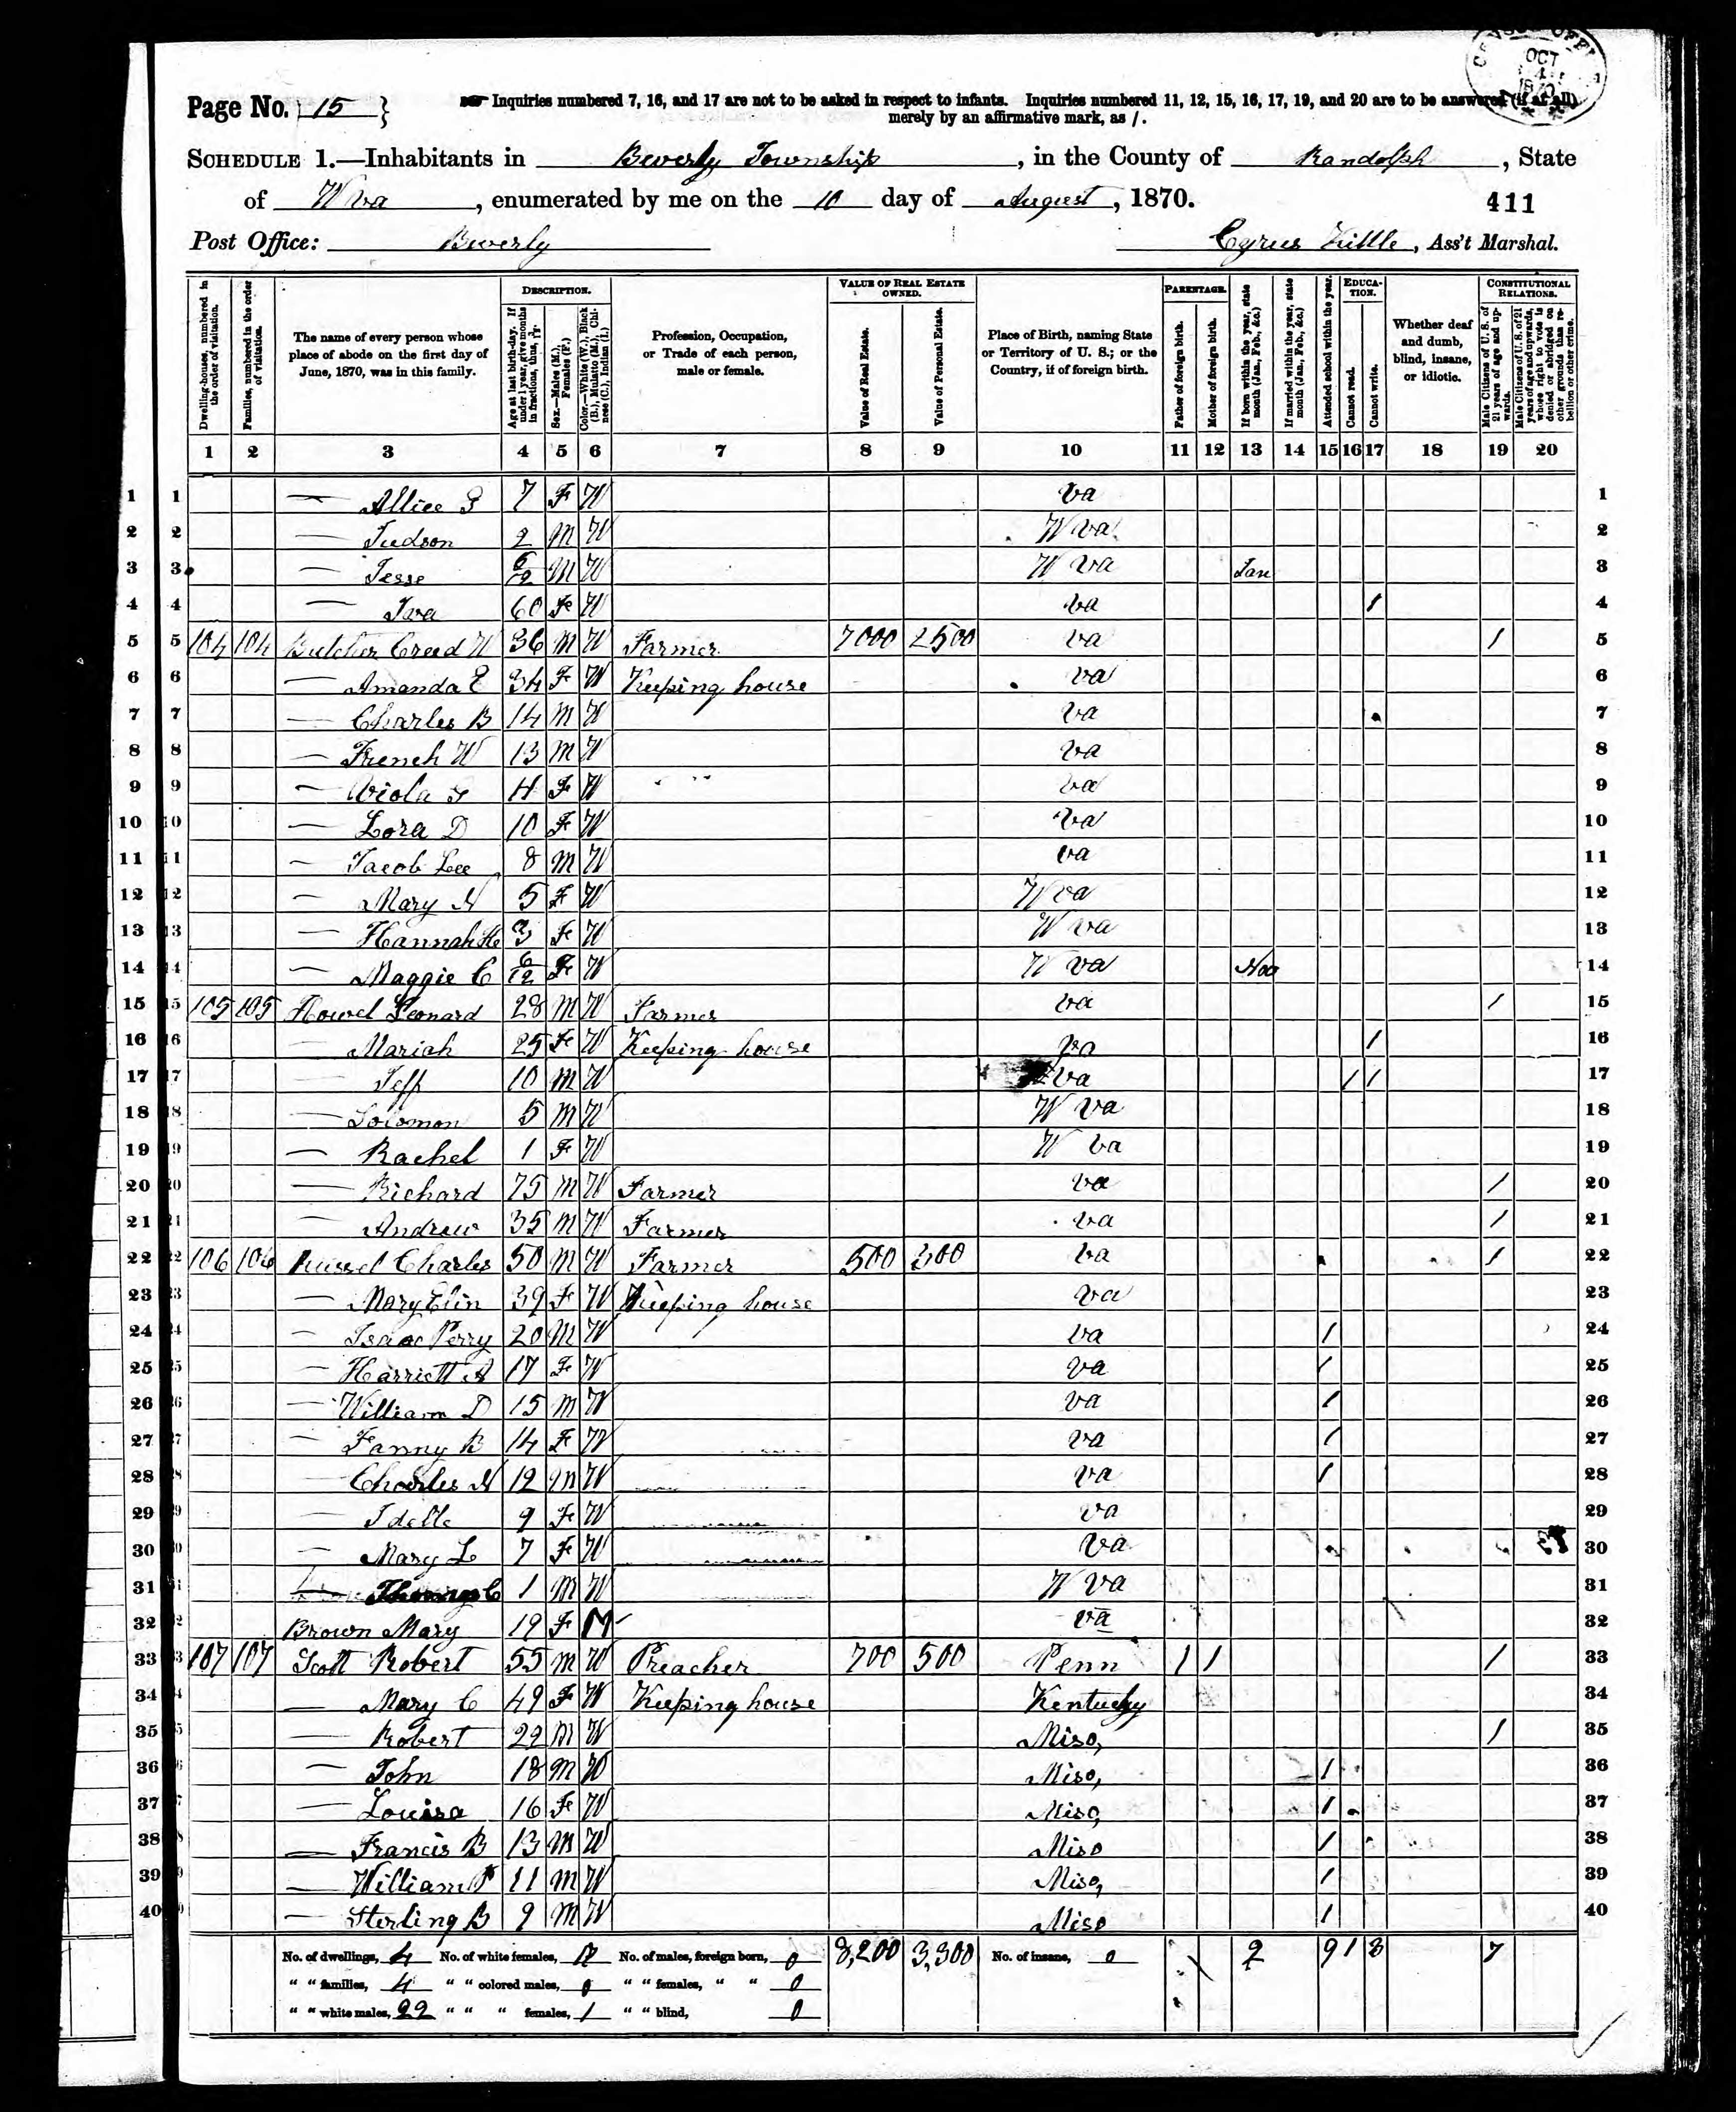 CENSUS OFFICE OCT 4 1870
Page No. 15 } Inquiries numbered 7, 16, and 17 are not to be asked in respect to infants. Inquiries numbered 11, 12, 15, 16, 17, 19, and 20 are to be answered (if at all)
merely by an affirmative mark, as /.
SCHEDULE 1.—Inhabitants in Beverly Township, in the County of Randolph, State
of W va, enumerated by me on the 10 day of August, 1870. 411
Post Office: Beverly Cyrus Kittle, Ass't Marshal.
Dwelling-houses, numbered in the order of visitation.
Families, numbered in the order of visitation.
The name of every person whose place of abode on the first day of June, 1870, was in this family.
DESCRIPTION.
Age at last birth-day. If under 1 year, give months in fractions, thus, 3/12.
Sex.—Males (M.), Females (F.)
Color.—White (W.), Black (B.), Mulatto (M.), Chinese (C.), Indian (I.)
Profession, Occupation, or Trade of each person, male or female.
VALUE OF REAL ESTATE OWNED.
Value of Real Estate.
Value of Personal Estate.
Place of Birth, naming State or Territory of U. S.; or the Country, if of foreign birth.
PARENTAGE.
Father of foreign birth.
Mother of foreign birth.
If born within the year, state month (Jan., Feb., &c.)
If married within the year, state month (Jan., Feb., &c.)
Attended school within the year.
EDUCATION.
Cannot read.
Cannot write.
Whether deaf and dumb, blind, insane, or idiotic.
CONSTITUTIONAL RELATIONS.
Male Citizens of U. S. of 21 years of age and upwards.
Male Citizens of U. S. of 21 years of age and upwards, whose right to vote is denied or abridged on other grounds than rebellion or other crime.
1 2 3 4 5 6 7 8 9 10 11 12 13 14 15 16 17 18 19 20
1 1 — Allice 7 F W va 1
2 2 — Judson 2 M W W va 2
3 3 — Jesse 6/12 M W W va Jan 3
4 4 — Iva 60 F W va / 4
5 5 104 104 Butcher Creed W 36 M W Farmer 7000 2500 va / 5
6 6 — Amanda E 34 F W Keeping house va 6
7 7 — Charles B 14 M W va 7
8 8 — French W 13 M W va 8
9 9 — Viola F W va 9
10 10 — Lora D 10 F W va 10
11 11 — Jacob Lee 8 M W va 11
12 12 — Mary 5 F W W va 12
13 13 — Hannah 3 F W W va 13
14 14 — Maggie C 6/12 F W W va Nov 14
15 15 105 105 Howel Leonard 28 M W Farmer va / 15
16 16 — Mariah 25 F W Keeping house va / 16
17 17 — Jeff 10 M W va / / 17
18 18 — Solomon 5 M W W va 18
19 19 — Rachel 1 F W W va 19
20 20 — Richard 75 M W Farmer va / 20
21 21 — Andrew 35 M W Farmer va / 21
22 22 106 106 Charles 50 M W Farmer 500 300 va / 22
23 23 — Mary Elin 39 F W Keeping house va 23
24 24 — Isaac Perry 20 M W va / 24
25 25 — Harriett A 17 F W va / 25
26 26 — William D 15 M W va / 26
27 27 — Fanny B 14 F W va / 27
28 28 — Charles N 12 M W va / 28
29 29 — Idelle 9 F W va 29
30 30 — Mary L 7 F W va 30
31 31 — Thomas C 1 M W W va 31
32 32 Brown Mary 19 F M va 32
33 33 107 107 Scott Robert 55 M W Preacher 700 500 Penn / / / 33
34 34 — Mary C 49 F W Keeping house Kentucky 34
35 35 — Robert 22 M W Miso, / 35
36 36 — John 18 M W Miso, / 36
37 37 — Louisa 16 F W Miso, / 37
38 38 — Francis B 13 M W Miso / 38
39 39 — William 11 M W Miso, / 39
40 40 — Sterling B 9 M W Miso / 40
No. of dwellings, 4 No. of white females, 17 No. of males, foreign born, 0 8,200 3,300 No. of insane, 0 2 9 1 3 7
" " families, 4 " " colored males, 0 " " females, " " 0
" " white males, 22 " " " females, 1 " " blind, 0